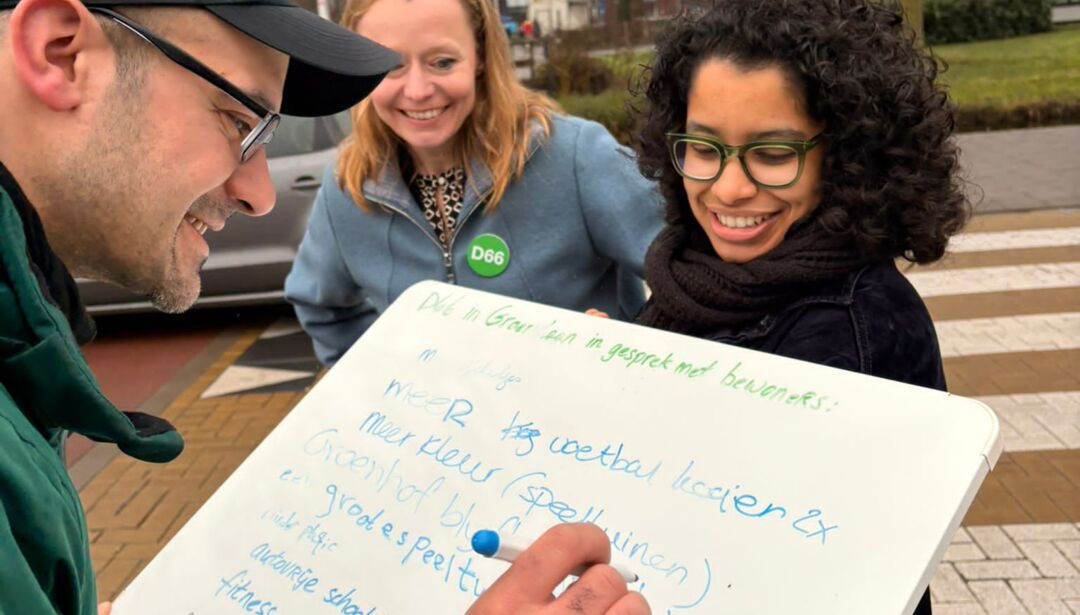 D66
D66 in Groenlaan in gesprek met bewoners:
meeR voetbal kooien 2x
meer kleur (speeltuinen)
Groenhof blyft
een grootespeeltu
minder plastic
autovrije school
fitness